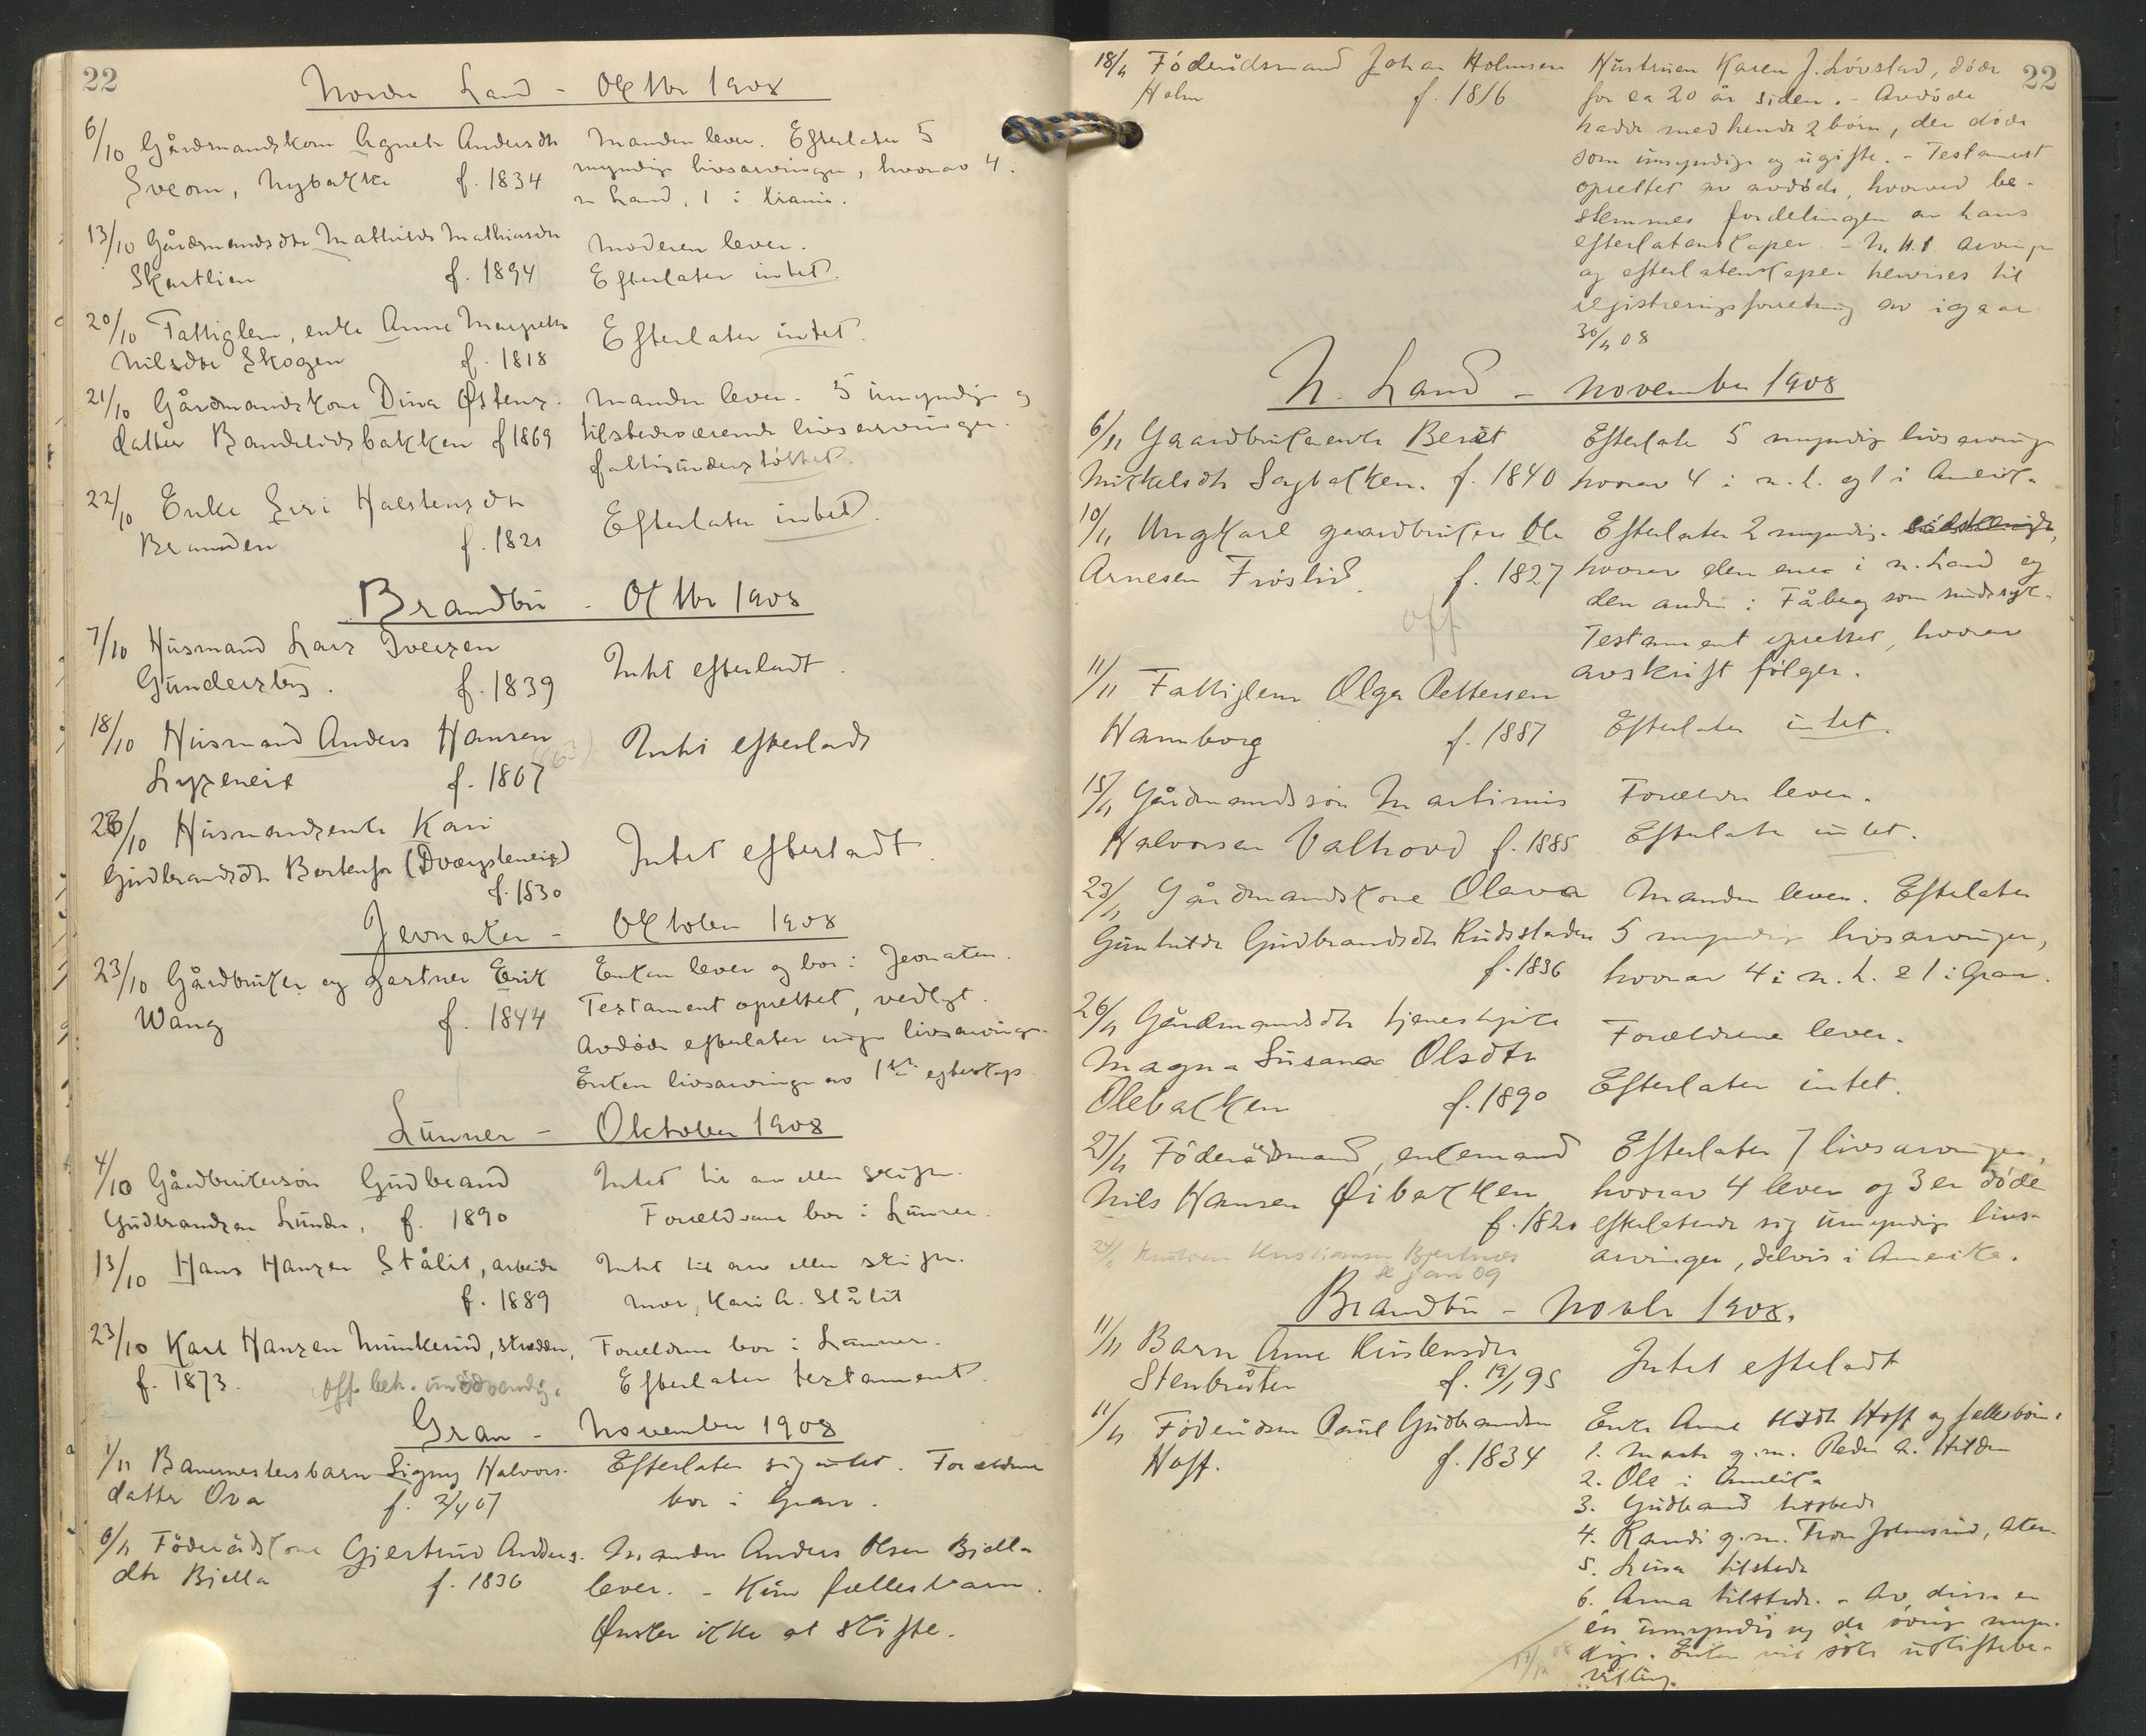 22
Nordre Land - Oktbr 1908
6/10 Gårdmandskone Agnethe Andersdtr
Sveom, Nybakke f. 1834
Manden lever. Efterlater 5
myndige livsarvinger, hvorav 4 i
n Land, 1 i Xiania.
13/10 Gårdmandsdtr Mathilde Mathiasdtr
Skartlien f. 1894
Moderen lever.
Efterlater intet.
20/10 Fattiglem, enke Anne Margrethe
Nilsdtr Skogen f. 1818
Efterlater intet.
21/10 Gårdmandskone Dina Østens-
datter Bandlidsbakken f 1869
Manden lever. 5 umyndige og
tilstedeværende livsarvinger.
fattigunderstöttet.
22/10 Enke Siri Halstensdtr
Brænden f. 1821
Efterlater intet.
Brandbu - Oktbr 1908
7/10 Husmand Lars Iversen
Gundersby. f. 1839
Intet efterladt.
18/10 Husmand Anders Hansen
Lyseneie f. 1867
Intet efterladt
23/10 Husmandsenke Kari
Gudbrandsdtr (Dvergsteneie)
f. 1830
Intet efterladt.
Jevnaker - Oktober 1908
23/10 Gårdbruker og gartner Erik
Wang f. 1844
Enken lever og bor i Jevnaker.
Testament oprettet, vedlagt.
Avdöde efterlater ingen livsarvinger.
Enken livsarvinger av 1ste egteskap
Lunner - Oktober 1908
4/10 Gårdbrukersön Gudbrand
Gudbrandsen Lunder, f. 1890
Intet til arv eller skifte.
Forældrene bor i Lunner.
13/10 Hans Hansen Stålit, arbeider
f. 1889
Intet til arv eller skifte.
Mor, Kari A. Stålit
23/10 Karl Hansen Munkerud, skrædder,
f. 1873. off. beh. unödvendig.
Forældrene bor i Lunner.
Efterlater testament.
Gran - November 1908
1/11 Banemestersbarn Signy Halvors-
datter Ova f. 2/4 07
Efterlater sig intet. Forældrene
bor i Gran.
6/11 Föderådskone Gjertrud Anders-
dtr Bjella f. 1836
Manden Anders Olsen Bjella
lever. - Kun fællesbarn.
Ønsker ikke at skifte.
22
18/11 Föderådsmand Johan Holmsen
Holm f. 1816
Hustruen Karen J. Lövstad, döde
for ca 20 år siden. - Avdöde
hadde med hende 2 börn, der döde
som umyndige og ugifte. - Testament
oprettet av avdöde, hvorved be-
stemmes fordelingen av hans
efterlatenskaper. - M. H. t. arvinger
og efterlatenskaper henvises til
registreringsforretning av igaar
30/11 08
N. Land - November 1908
6/11 Gaardbrukerenke Berit
Mikkelsdtr Sagbakken. f. 1840
Efterlater 5 myndige livsarvinger
hvorav 4 i n. L. og 1 i Amerika.
10/11 Ungkarl gaardbruker Ole
Arnesen Fröslid. f. 1827
off
Efterlater 2 myndige
hvorav den ene i n. Land og
den anden i Fåberg som sindssyk.
Testament oprettet, hvorav
avskrift følger.
11/11 Fattiglem Olga Pettersen
Hamborg f. 1887
Efterlater intet.
15/11 Gårdmandssön Martinius
Halvorsen Valhovd f. 1885
Forældre lever.
Efterlater intet.
23/11 Gårdmandskone Olava
Gunhilde Gudbrandsdtr Rudsstaden
f. 1836
Manden lever. Efterlater
5 myndige livsarvinger,
hvorav 4 i n. L. & 1 i Gran.
26/11 Gårdmandsdtr tjenestepike
Magna Susana Olsdtr
Olebakken f. 1890
Forældrene lever.
Efterlater intet.
27/11 Föderådsmand, enkemand
Nils Hansen Øibakken
f. 1820
Efterlater 7 livsarvinger,
hvorav 4 lever og 3 er döde
efterlatende sig umyndige livs-
arvinger, delvis i Amerika.
24/11 Kristian Kristiansen Bjertnæs
se jan 09
Brandbu - Novbr 1908.
11/11 Barn Anne Kristensdtr
Stenbråten f. 19/1 95
Intet efterladt
11/11 Föderådsm Paul Gudbrandsen
Hoff. f. 1834
Enke Anne Hoff og fellesbörn:
1. Marte g.m. Peder A. Hilden
2. Ole i Amerika
3. Gudbrand tilstede
4. Randi g.m. Tron Johnsrud, Aten.
5. Lina tilstede
6. Anna tilstede. - Av disse er
én umyndig og de övrige myn-
dige. Enken vil söke uskiftebe-
villing.
17/12 08